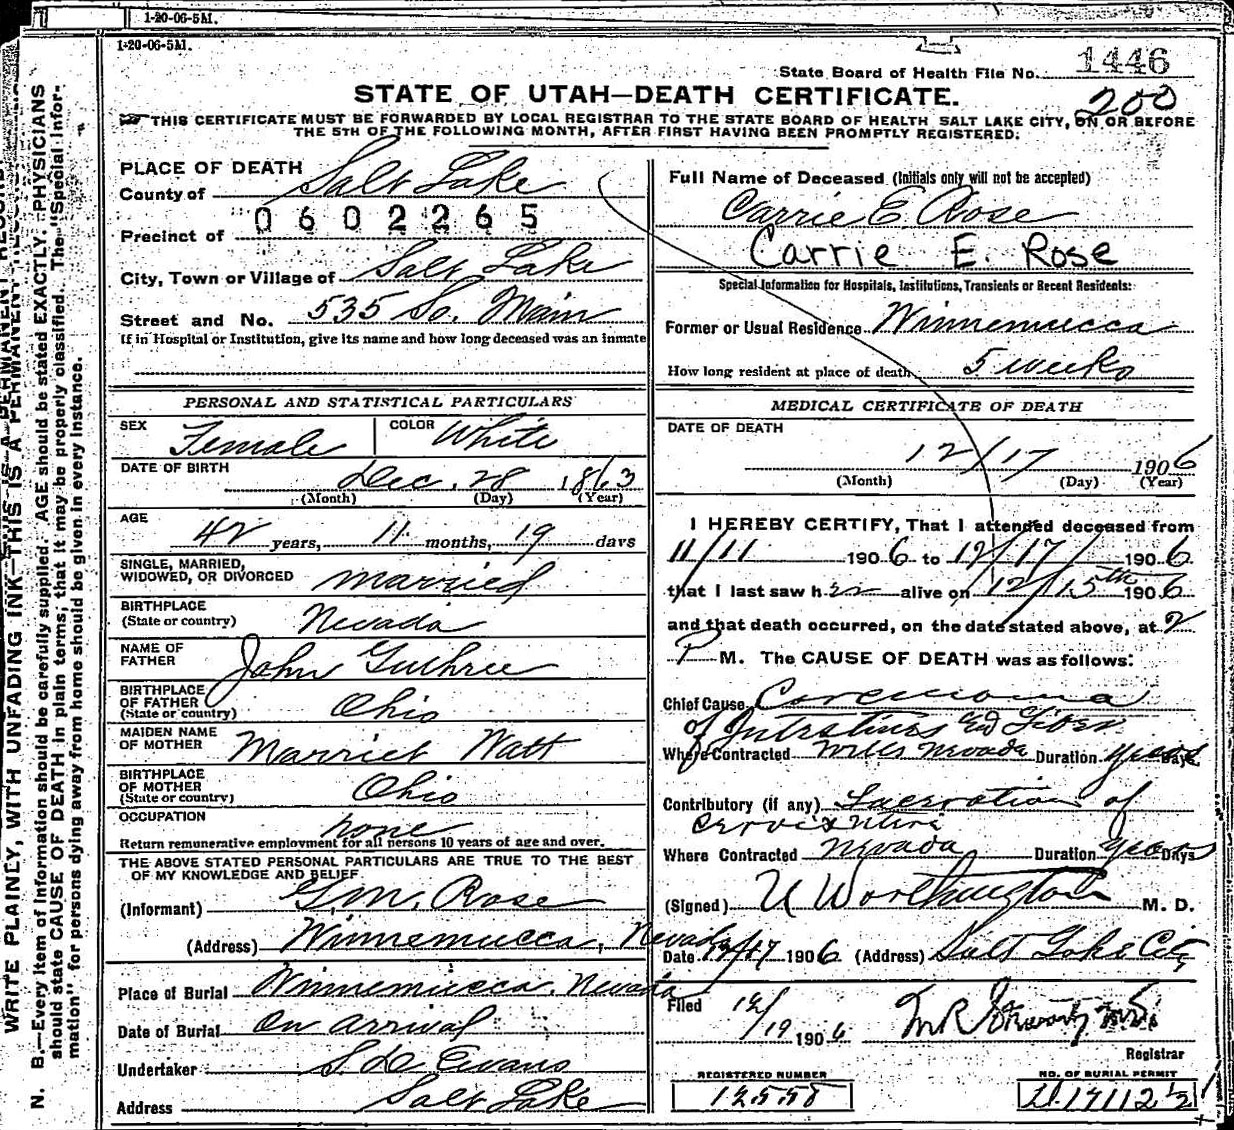 1-20-06-5M.
1-20-06-5M.
State Board of Health File No. 1446
200
STATE OF UTAH—DEATH CERTIFICATE.
THIS CERTIFICATE MUST BE FORWARDED BY LOCAL REGISTRAR TO THE STATE BOARD OF HEALTH SALT LAKE CITY, ON OR BEFORE
THE 5TH OF THE FOLLOWING MONTH, AFTER FIRST HAVING BEEN PROMPTLY REGISTERED.
WRITE PLAINLY, WITH UNFADING INK—THIS IS A PERMANENT
N. B.—Every item of information should be carefully supplied. AGE should be stated EXACTLY. PHYSICIANS
should state CAUSE OF DEATH in plain terms, that it may be properly classified. The "Special Infor-
mation" for persons dying away from home should be given in every instance.
PLACE OF DEATH
County of Salt Lake
0602265
Precinct of
City, Town or Village of Salt Lake
Street and No. 535 So. Main
If in Hospital or Institution, give its name and how long deceased was an inmate
PERSONAL AND STATISTICAL PARTICULARS
SEX Female COLOR White
DATE OF BIRTH Dec. 28 1863
(Month) (Day) (Year)
AGE 42 years, 11 months, 19 days
SINGLE, MARRIED,
WIDOWED, OR DIVORCED married
BIRTHPLACE
(State or country) Nevada
NAME OF
FATHER John Guthrie
BIRTHPLACE
OF FATHER
(State or country) Ohio
MAIDEN NAME
OF MOTHER Marriet Watt
BIRTHPLACE
OF MOTHER
(State or country) Ohio
OCCUPATION none
Return remunerative employment for all persons 10 years of age and over.
THE ABOVE STATED PERSONAL PARTICULARS ARE TRUE TO THE BEST
OF MY KNOWLEDGE AND BELIEF
(Informant) G.M. Rose
(Address) Winnemucca, Nevada
Place of Burial Winnemucca, Nevada
Date of Burial On arrival
Undertaker Evans
Address Salt Lake
Full Name of Deceased (Initials only will not be accepted)
Carrie E Rose
Carrie E. Rose
Special Information for Hospitals, Institutions, Transients or Recent Residents:
Former or Usual Residence Winnemucca
How long resident at place of death 5 weeks
MEDICAL CERTIFICATE OF DEATH
DATE OF DEATH
12/17 1906
(Month) (Day) (Year)
I HEREBY CERTIFY, That I attended deceased from
11/11 1906 to 12/17/ 1906
that I last saw her alive on 12/15th 1906
and that death occurred, on the date stated above, at 2
P M. The CAUSE OF DEATH was as follows:
Chief Cause Carcinoma
of Intestines and Liver
Where Contracted Nevada Duration years Days
Contributory (if any) Laceration of
Where Contracted Nevada Duration years Days
(Signed) U Worthington M. D.
Date 12/17 1906 (Address) Salt Lake City
Filed 12/19 1906
Registrar
REGISTERED NUMBER
12558
NO. OF BURIAL PERMIT